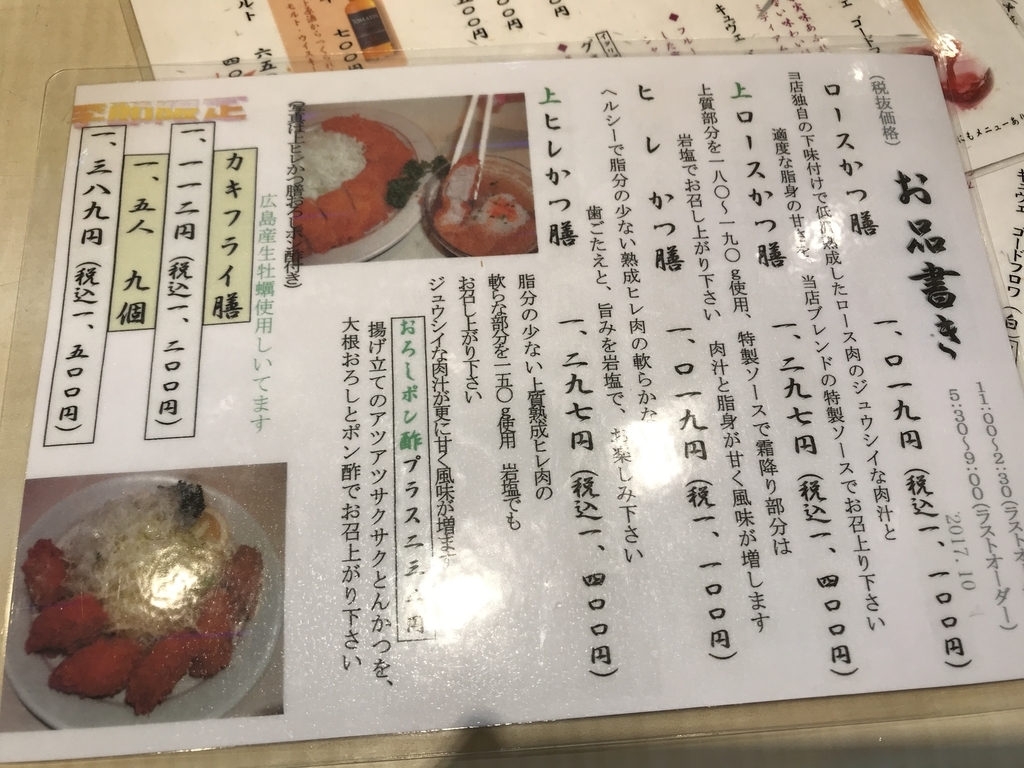 お品書き
(税抜価格)
11:00～2:30(ラストオーダー)
5:30～9:00(ラストオーダー)
2017.10
ロースかつ膳 一、〇一九円(税込一、一〇〇円)
当店独自の下味付けで低温熟成したロース肉のジュウシイな肉汁と
適度な脂身の甘さを、当店ブレンドの特製ソースでお召上り下さい
上ロースかつ膳 一、二九七円(税込一、四〇〇円)
上質部分を一八〇～一九〇g使用、特製ソースで霜降り部分は
岩塩でお召し上がり下さい 肉汁と脂身が甘く風味が増します
ヒレかつ膳 一、〇一九円(税一、一〇〇円)
ヘルシーで脂分の少ない熟成ヒレ肉の軟らかな
歯ごたえと、旨みを岩塩で、お楽しみ下さい
上ヒレかつ膳 一、二九七円(税込一、四〇〇円)
脂分の少ない上質熟成ヒレ肉の
軟らな部分を一五〇g使用 岩塩でも
お召し上がり下さい
ジュウシイな肉汁が更に甘く風味が増ます
おろしポン酢プラス二三一円
揚げ立てのアツアツサクサクとんかつを、
大根おろしとポン酢でお召上がり下さい
(写真は上ヒレかつ膳おろしポン酢付き)
広島産生牡蠣使用しいてます
季節限定
カキフライ膳
一、一一二円(税込一、二〇〇円)
一、五人 九個
一、三八九円(税込一、五〇〇円)
七〇〇円
キュヴェ ゴードフロワ (白)